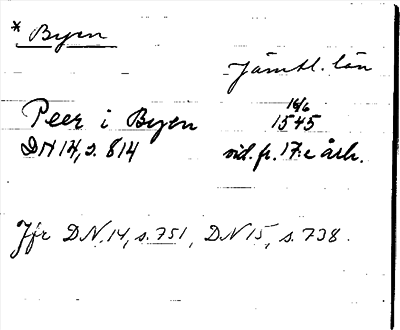 * Byen
Jämtl. län
Peer i Byen 16/6 1545
DN 14, s. 814 vid. fr. 17:e årh.
Jfr DN. 14, s. 751, DN 15, s. 738.